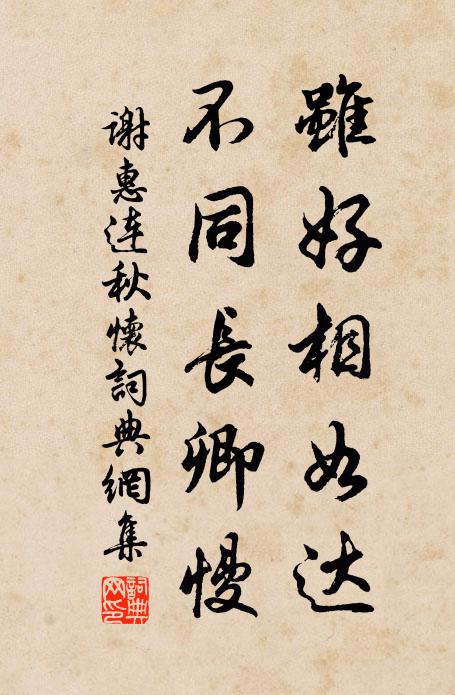 雖好相如达
不同長卿慢
谢惠連秋懷詞典網集
詞典
网印